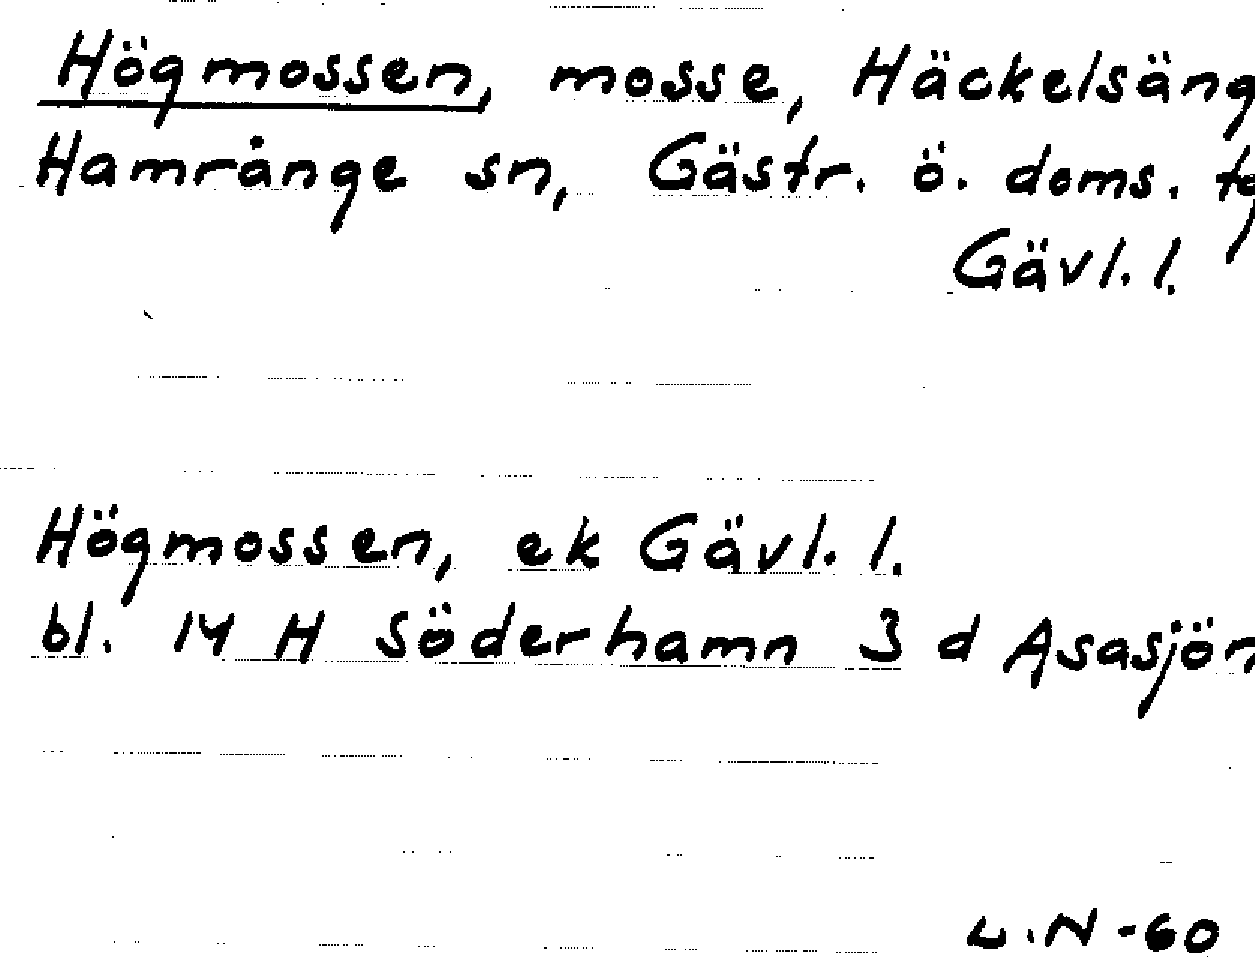 Högmossen, mosse, Häckelsäng
Hamrånge sn, Gästr. ö. doms. tg
Gävl. l.
Högmossen, ek Gävl. l.
bl. 14 H Söderhamn 3 d Asasjön
L.N -60